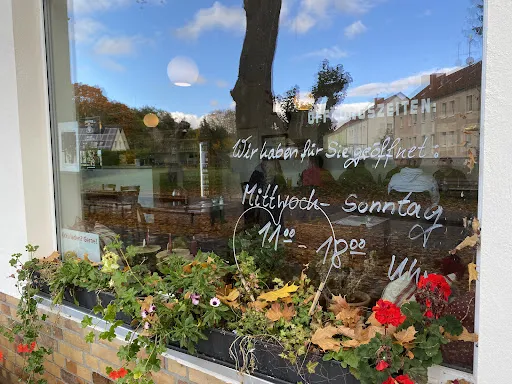 ÖFFNUNGSZEITEN:
Wir haben für Sie geöffnet:
Mittwoch - Sonntag
11⁰⁰ - 18⁰⁰ Uhr